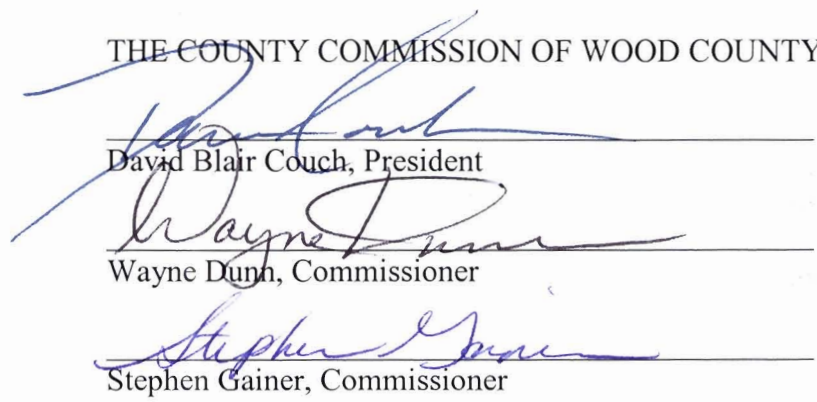 THE COUNTY COMMISSION OF WOOD COUNTY
David Couch
David Blair Couch, President
Wayne Dunn
Wayne Dunn, Commissioner
Stephen Gainer
Stephen Gainer, Commissioner